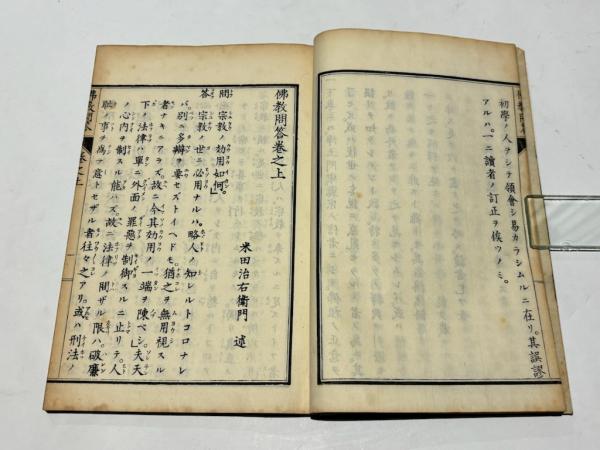 初學ノ人ヲシテ領會シ易カラシムルニ在リ。其誤謬
アルハ。一ニ讀者ノ訂正ヲ俟ツノミ。
佛教問答卷之上
米田治右衛門 述
問 宗教ノ効用如何。
答 宗教ノ世ニ必用ナルハ。略人ノ知レルトコロナレ
バ。別ニ多辯ヲ要セズトイヘドモ。猶之ヲ無用視スル
者ナキニアラズ。故ニ今其効用ノ一端ヲ陳ベシ。夫天
下ノ法律ハ單ニ外面ノ罪惡ヲ制御スルニ止リテ。人
ノ心内ヲ制スル能ハズ。故ニ法律ノ問ザル限ハ。破廉
耻ノ事ヲ爲テ意トセザル者往々之アリ。或ハ刑法ノ
佛教問答
卷之上